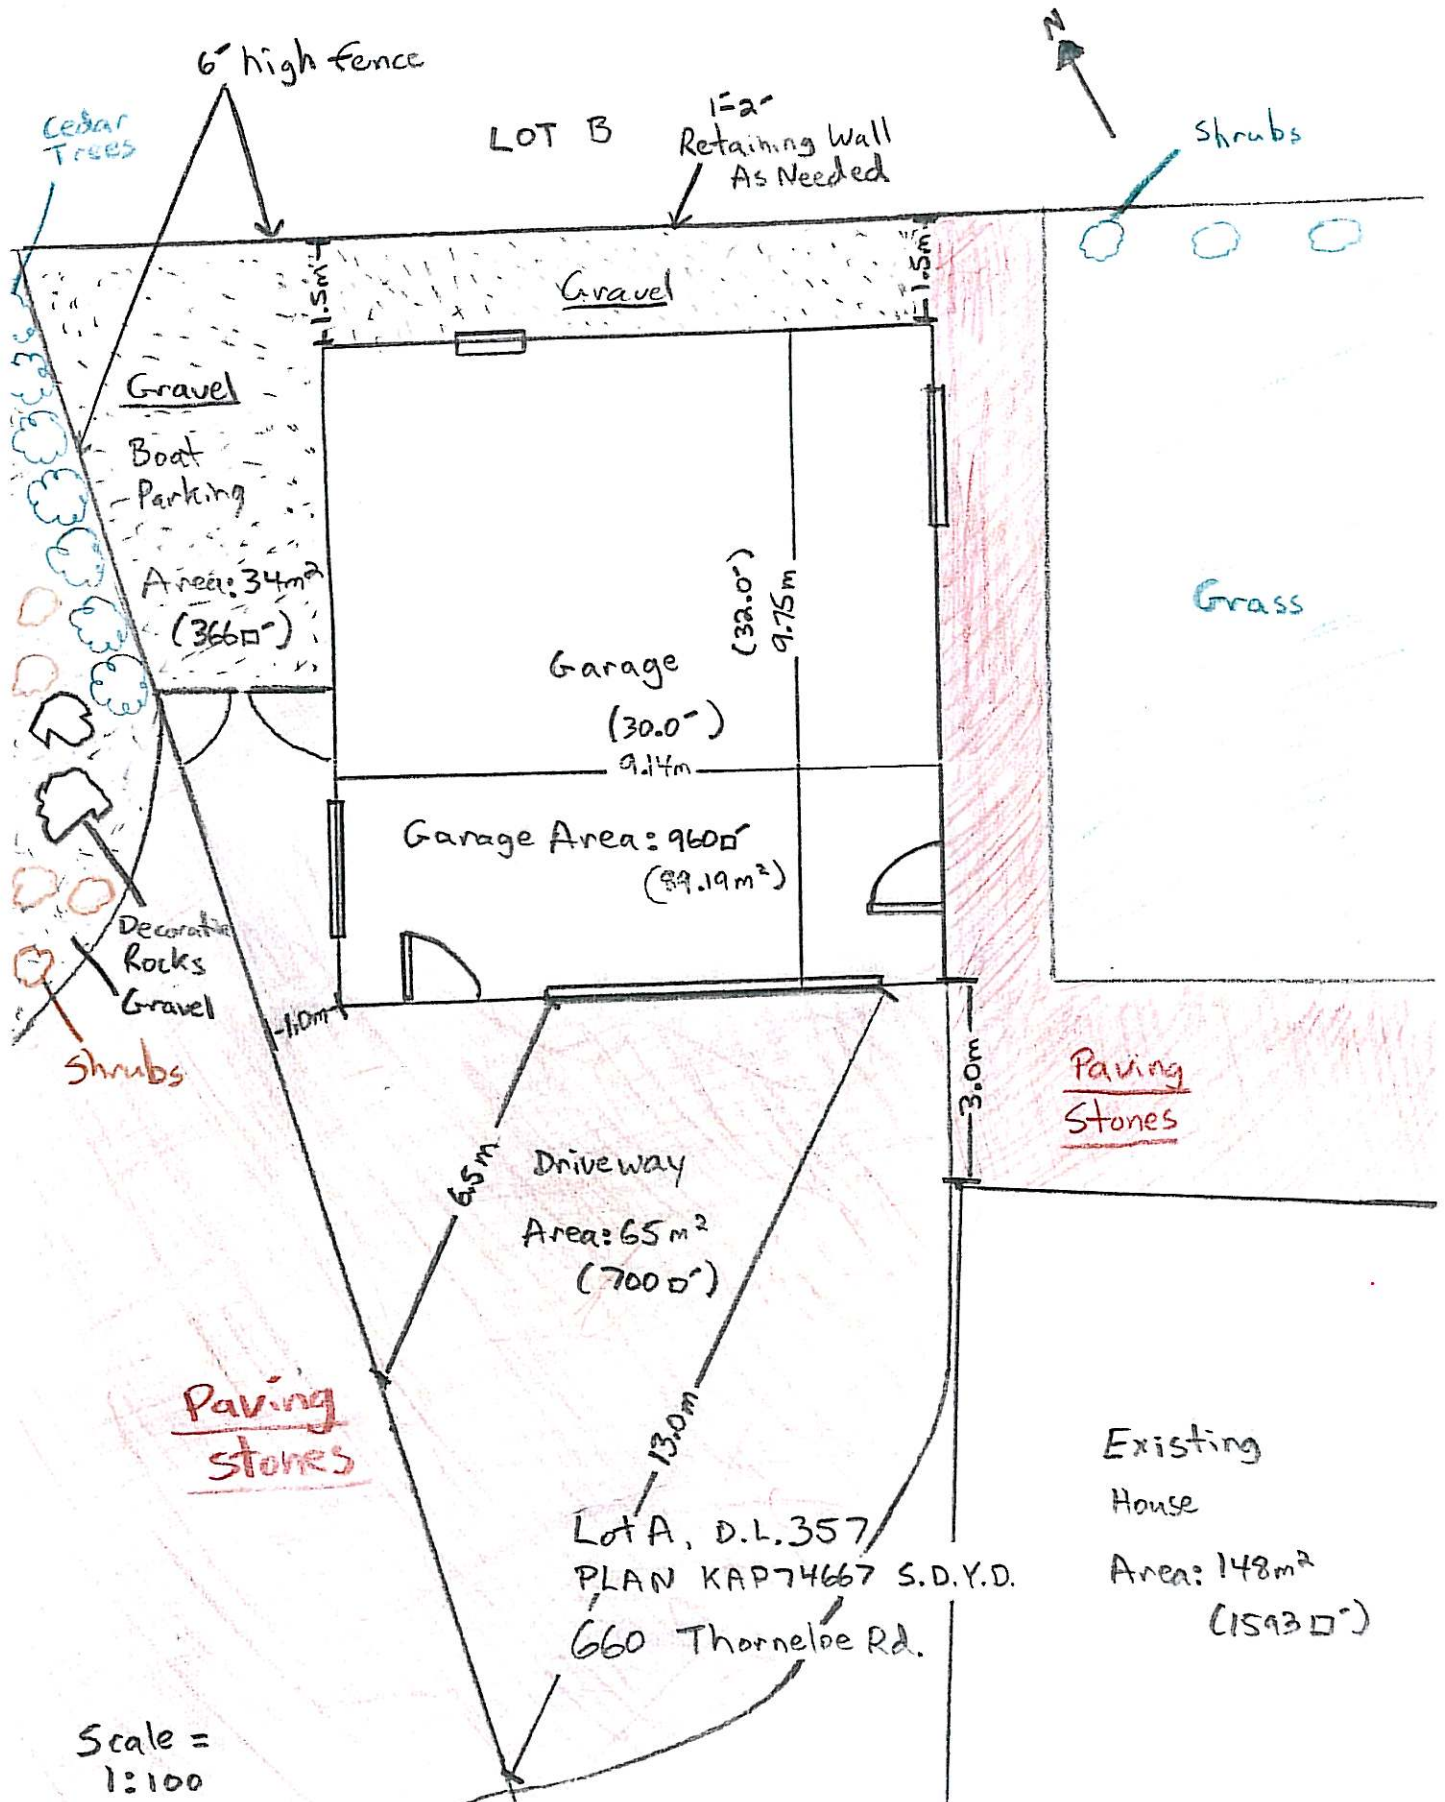 6' high fence
N
Cedar
Trees
LOT B
1'-2'
Retaining Wall
As Needed
Shrubs
1.5m
Gravel
1.5m
Gravel
Boat
Parking
Area: 34m²
(366□')
(32.0')
9.75m
Grass
Garage
(30.0')
9.14m
Garage Area: 960□'
(89.19m²)
Decorative
Rocks
Gravel
1.0m
Shrubs
3.0m
Paving
Stones
6.5m
Driveway
Area: 65m²
(700□')
Paving
stones
13.0m
Existing
House
Area: 148m²
(1593□')
Lot A, D.L.357
PLAN KAP74667 S.D.Y.D.
660 Thorneloe Rd.
Scale =
1:100